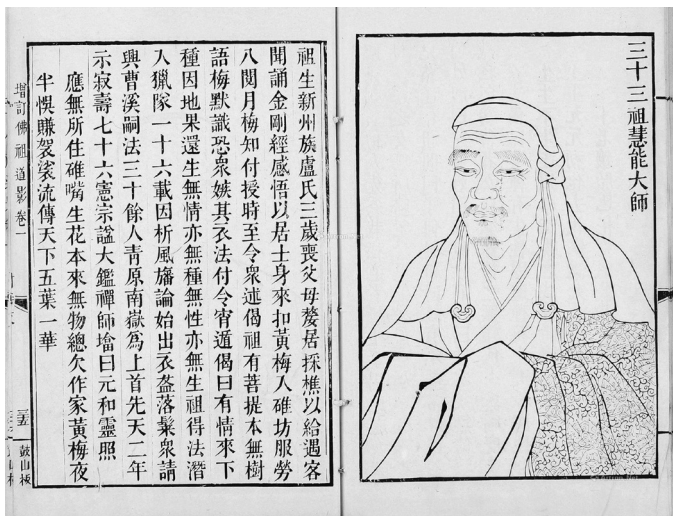 三十三祖慧能大師
祖生新州族盧氏三歲喪父母嫠居採樵以給遇客
聞誦金剛經感悟以居士身來扣黃梅入碓坊服勞
八閱月梅知付授時至令衆述偈祖有菩提本無樹
語梅默識恐衆嫉其衣法付令宵遁偈曰有情來下
種因地果還生無情亦無種無性亦無生祖得法潛
入獵隊一十六載因析風旛論始出衣盋落髮衆請
興曹溪嗣法三十餘人青原南嶽爲上首先天二年
示寂壽七十六憲宗諡大鑑禪師墖曰元和靈照
應無所住碓嘴生花本來無物總欠作家黃梅夜
半悞賺袈裟流傳天下五葉一華
增訂佛祖道影卷一
鼓山板